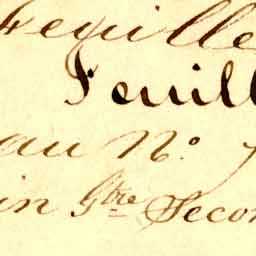 Feuille
Feuill
au N.o 7
in 9bre Secon